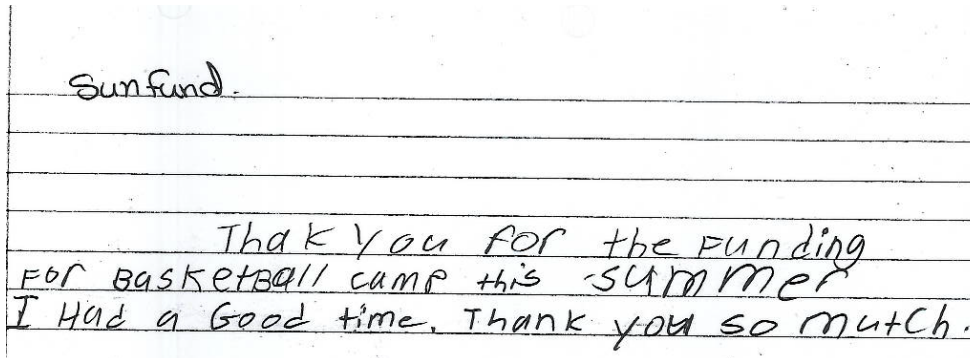 Sunfund.
Thak you for the Funding
For BasketBall camp this summer
I Had a Good time. Thank you so mutCh.